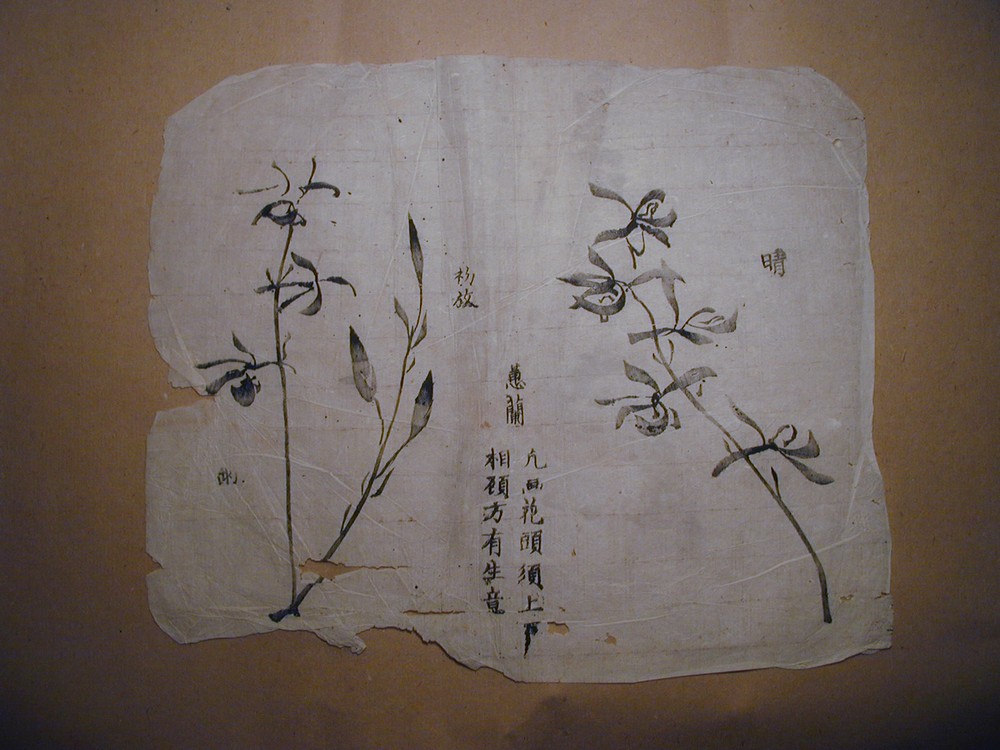 晴
蕙蘭
凡画花頭須上下
相顧方有生意
初放
雨